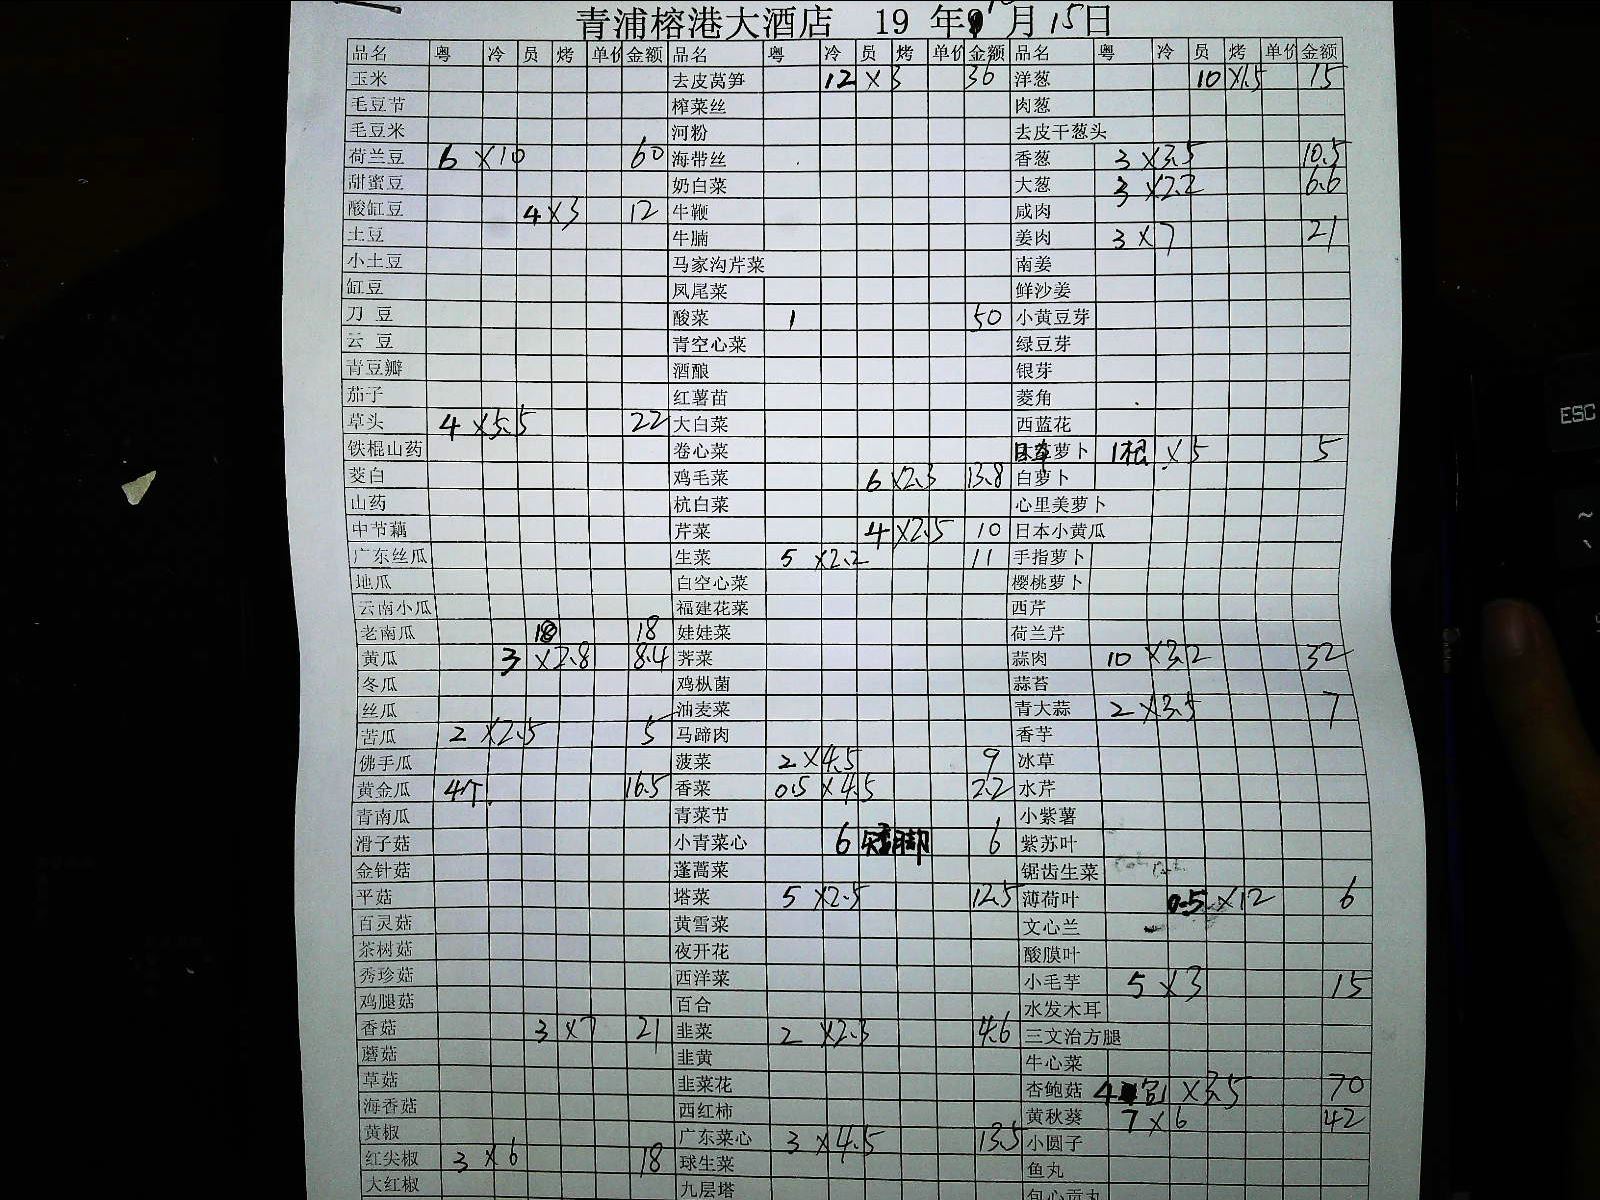 青浦榕港大酒店 19 年 10 月 15 日
品名 粤 冷 员 烤 单价 金额 品名 粤 冷 员 烤 单价 金额 品名 粤 冷 员 烤 单价 金额
玉米 去皮莴笋 12 ×3 36 洋葱 10 ×1.5 15
毛豆节 榨菜丝 肉葱
毛豆米 河粉 去皮干葱头
荷兰豆 6 ×10 60 海带丝 香葱 3 ×3.5 10.5
甜蜜豆 奶白菜 大葱 3 ×2.2 6.6
酸缸豆 4 ×3 12 牛鞭 咸肉
土豆 牛腩 姜肉 3 ×7 21
小土豆 马家沟芹菜 南姜
缸豆 凤尾菜 鲜沙姜
刀 豆 酸菜 1 50 小黄豆芽
云 豆 青空心菜 绿豆芽
青豆瓣 酒酿 银芽
茄子 红薯苗 菱角
草头 4 ×5.5 22 大白菜 西蓝花
铁棍山药 卷心菜 萝卜 1根 ×5 5
茭白 鸡毛菜 6 ×2.3 13.8 白萝卜
山药 杭白菜 心里美萝卜
中节藕 芹菜 4 ×2.5 10 日本小黄瓜
广东丝瓜 生菜 5 ×2.2 11 手指萝卜
地瓜 白空心菜 樱桃萝卜
云南小瓜 福建花菜 西芹
老南瓜 18 18 娃娃菜 荷兰芹
黄瓜 3 ×2.8 8.4 荠菜 蒜肉 10 ×3.2 32
冬瓜 鸡枞菌 蒜苔
丝瓜 油麦菜 青大蒜 2 ×3.5 7
苦瓜 2 ×2.5 5 马蹄肉 香芋
佛手瓜 菠菜 2 ×4.5 9 冰草
黄金瓜 4个 16.5 香菜 0.5 ×4.5 2.2 水芹
青南瓜 青菜节 小紫薯
滑子菇 小青菜心 6 矮脚 6 紫苏叶
金针菇 蓬蒿菜 锯齿生菜
平菇 塔菜 5 ×2.5 12.5 薄荷叶 0.5 ×12 6
百灵菇 黄雪菜 文心兰
茶树菇 夜开花 酸膜叶
秀珍菇 西洋菜 小毛芋 5 ×3 15
鸡腿菇 百合 水发木耳
香菇 3 ×7 21 韭菜 2 ×2.3 4.6 三文治方腿
蘑菇 韭黄 牛心菜
草菇 韭菜花 杏鲍菇 包 ×3.5 70
海香菇 西红柿 黄秋葵 7 ×6 42
黄椒 广东菜心 3 ×4.5 13.5 小圆子
红尖椒 3 ×6 18 球生菜 鱼丸
大红椒 九层塔 包心贡丸